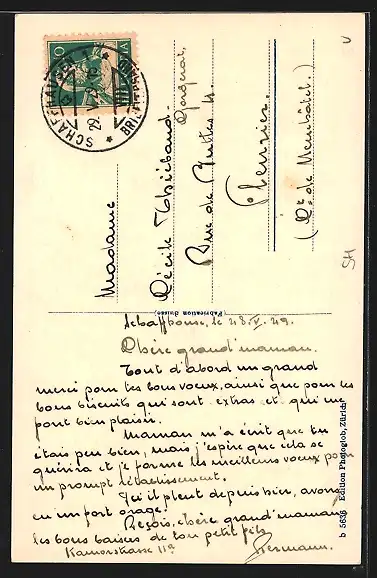 SCHAFFHAUSEN 1
BRIEFVERSAND
HELVETIA
10
Madame
Cécile Thiébaud-
Gendarme,
Rue de Buttes 4
Fleurier.
(Ct. de Neuchâtel.)
SH
(Fabrication Suisse)
b 5636 Edition Photoglob, Zürich
Schaffhouse, le 28.V.29.
Chère grand'maman.
Tout d'abord un grand
merci pour tes bons voeux, ainsi que pour les
bons biscuits qui sont extras et qui me
font bien plaisir.
Maman m'a écrit que tu
étais peu bien, mais j'espère que cela se
guérira et je forme les meilleurs voeux pour
un prompt rétablissement.
Ici il pleut depuis hier, avons
eu un fort orage.
Reçois, chère grand'maman
les bons baisers de ton petit fils
Hermann.